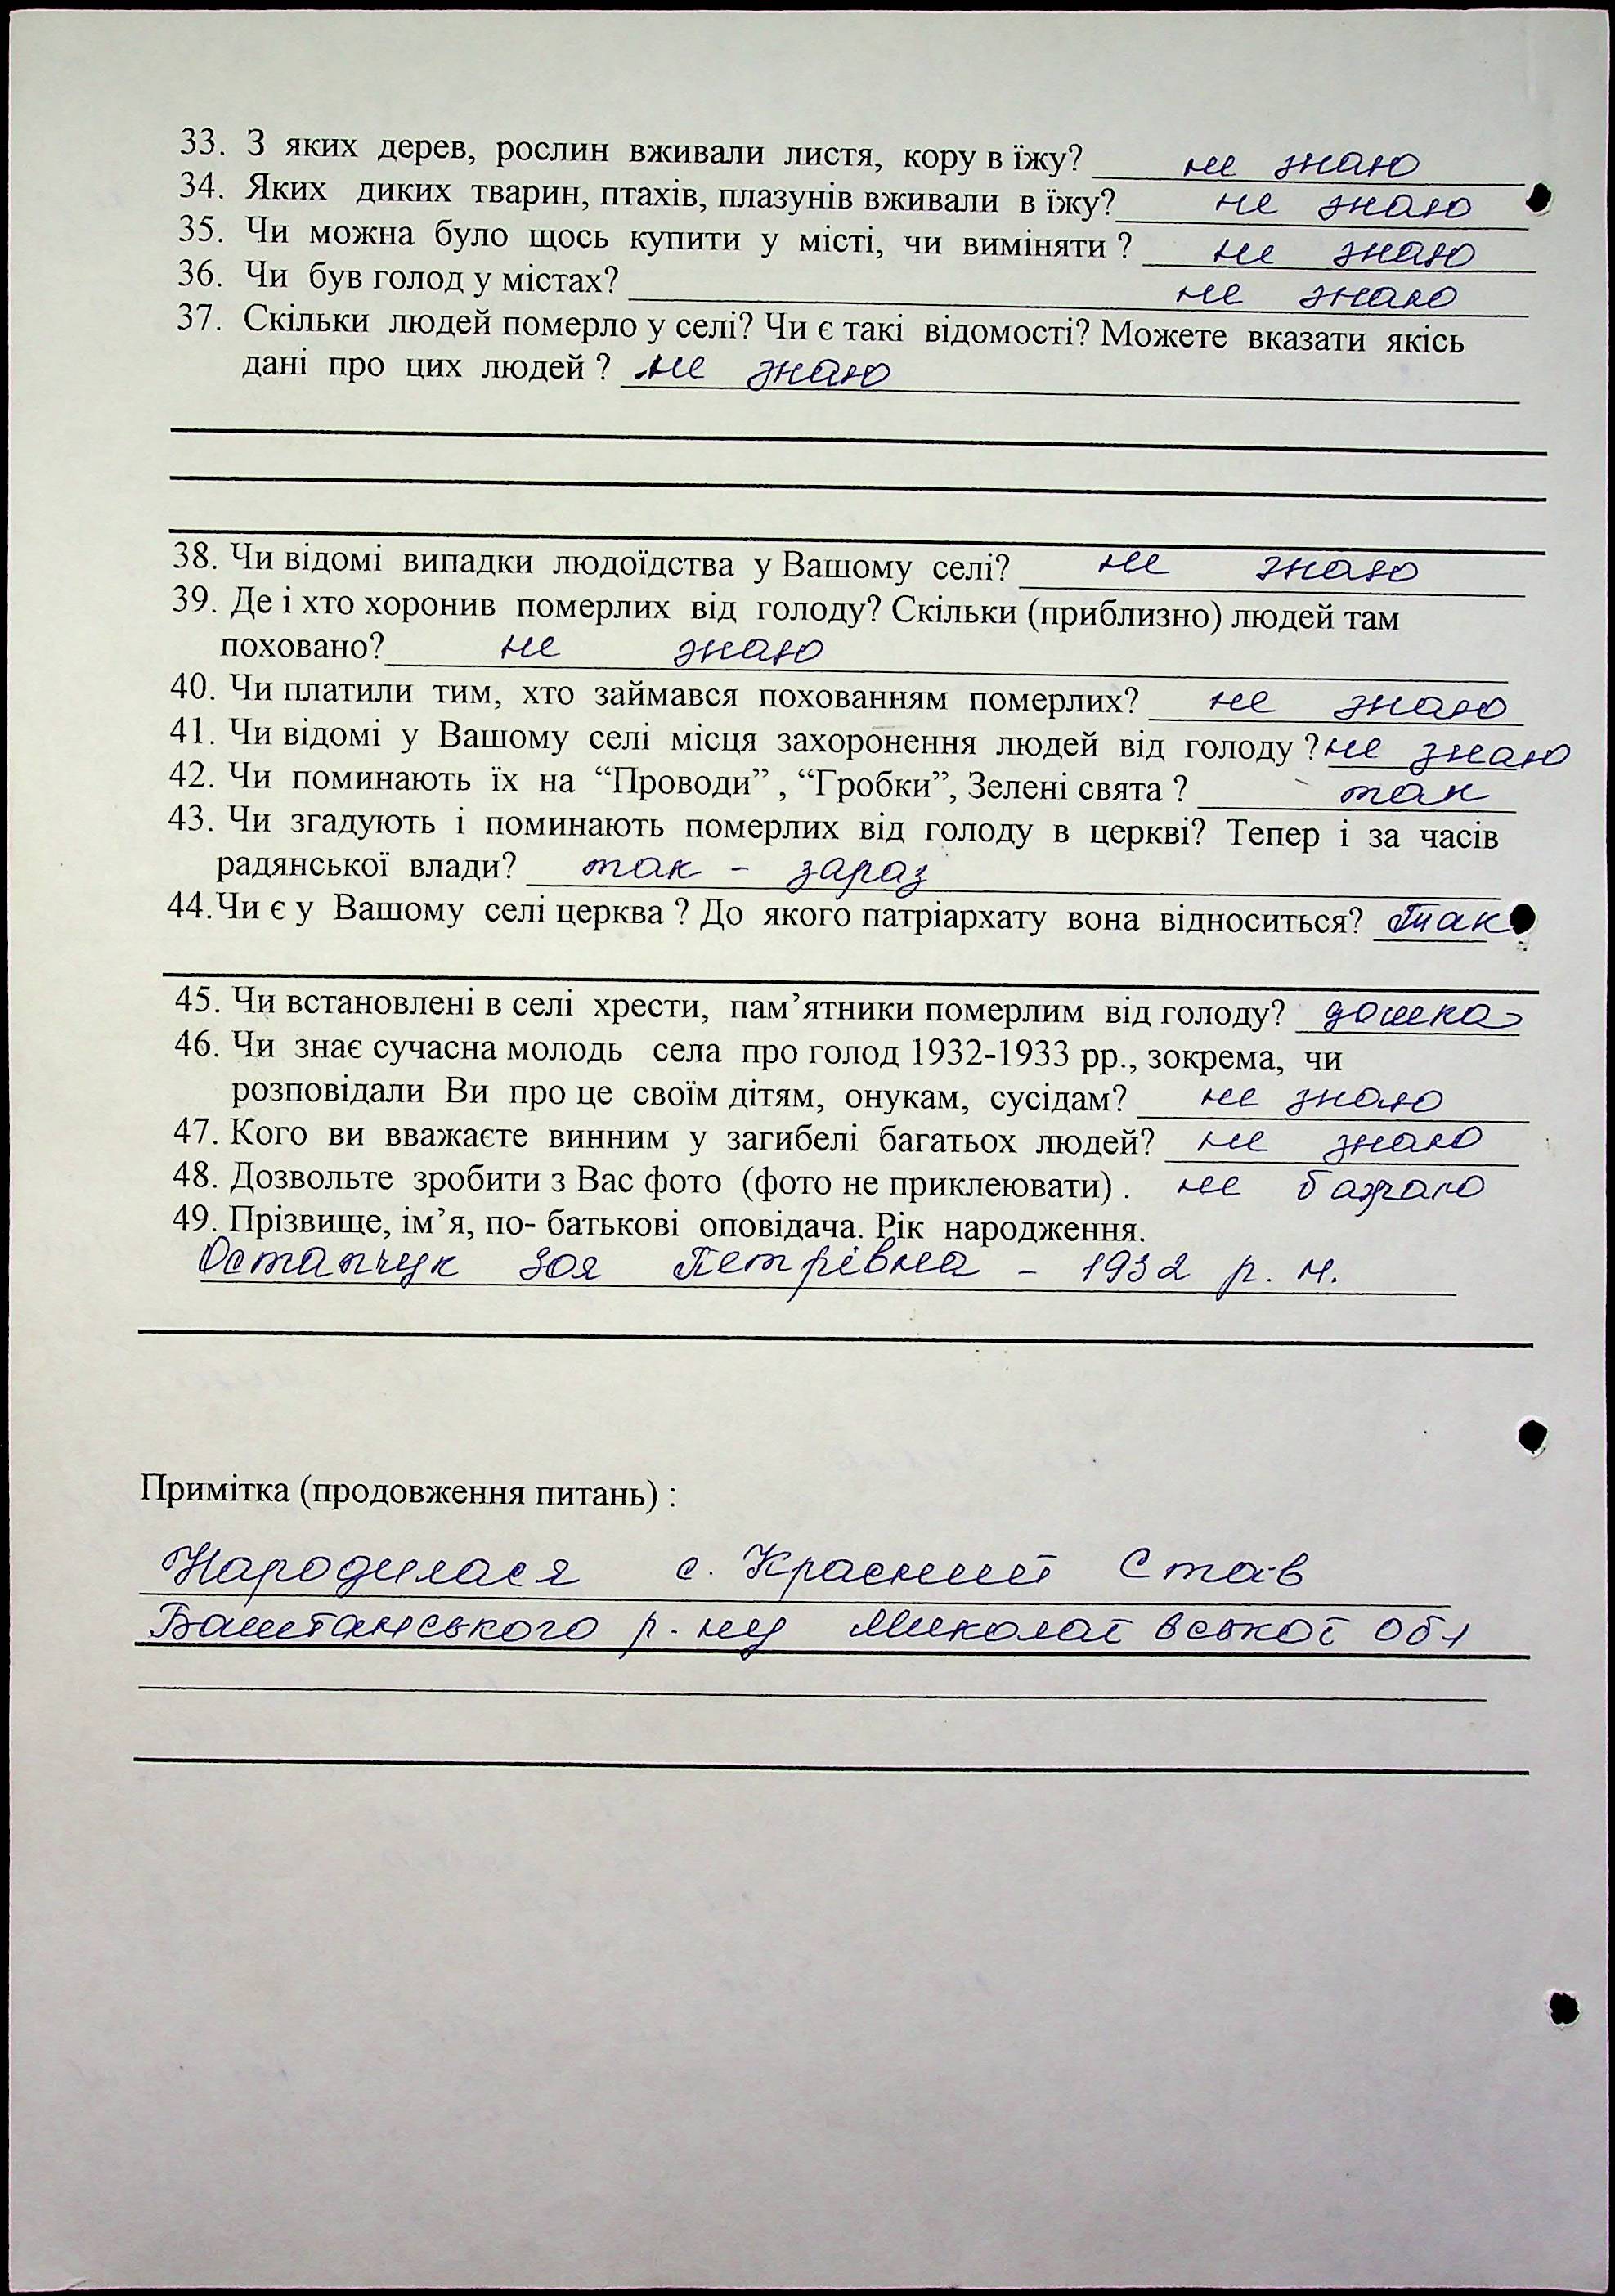 33. З яких дерев, рослин вживали листя, кору в їжу? не знаю
34. Яких диких тварин, птахів, плазунів вживали в їжу? не знаю
35. Чи можна було щось купити у місті, чи виміняти ? не знаю
36. Чи був голод у містах? не знаю
37. Скільки людей померло у селі? Чи є такі відомості? Можете вказати якісь
дані про цих людей ? не знаю
38. Чи відомі випадки людоїдства у Вашому селі? не знаю
39. Де і хто хоронив померлих від голоду? Скільки (приблизно) людей там
поховано? не знаю
40. Чи платили тим, хто займався похованням померлих? не знаю
41. Чи відомі у Вашому селі місця захоронення людей від голоду ? не знаю
42. Чи поминають їх на “Проводи” , “Гробки”, Зелені свята ? так
43. Чи згадують і поминають померлих від голоду в церкві? Тепер і за часів
радянської влади? так - зараз
44.Чи є у Вашому селі церква ? До якого патріархату вона відноситься? Так
45. Чи встановлені в селі хрести, пам’ятники померлим від голоду? дошка
46. Чи знає сучасна молодь села про голод 1932-1933 рр., зокрема, чи
розповідали Ви про це своїм дітям, онукам, сусідам? не знаю
47. Кого ви вважаєте винним у загибелі багатьох людей? не знаю
48. Дозвольте зробити з Вас фото (фото не приклеювати) . не бажаю
49. Прізвище, ім’я, по- батькові оповідача. Рік народження.
Остапчук Зоя Петрівна - 1932 р. н.
Примітка (продовження питань) :
Народилася с. Красний Став
Баштанського р. ну Миколаївської обл